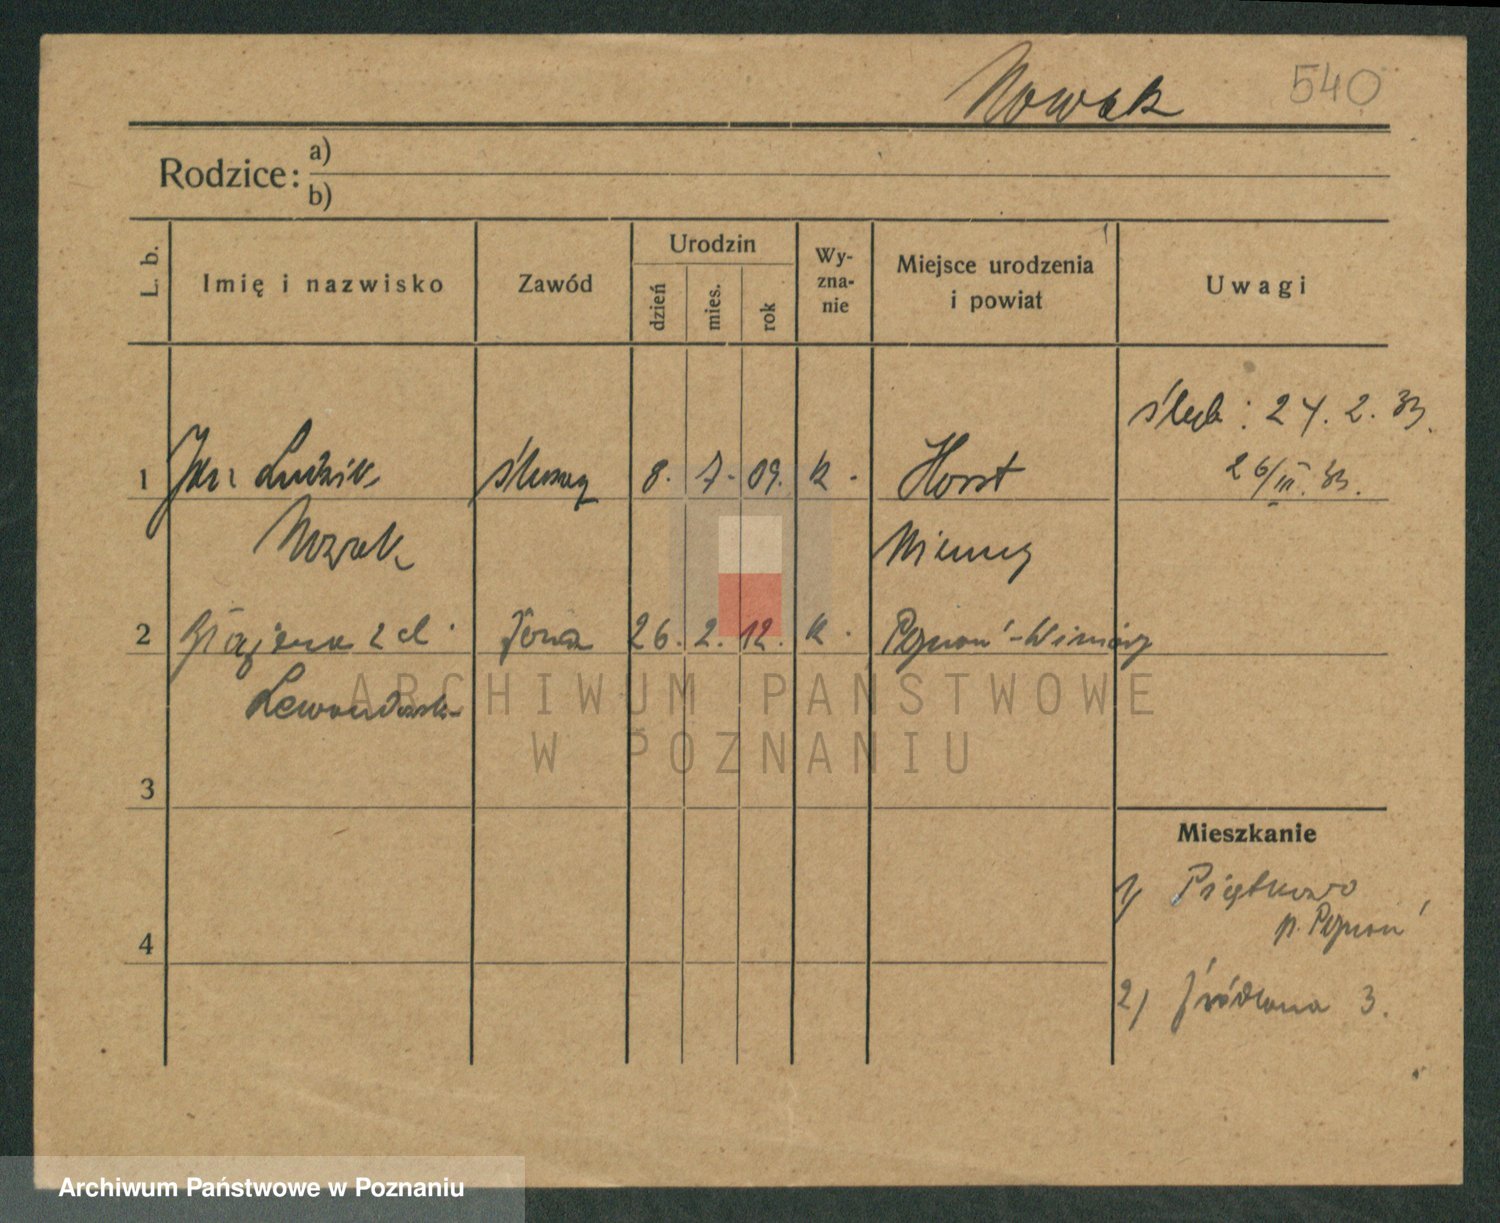 Nowak 540
Rodzice: a)
b)
L. b. Imię i nazwisko Zawód Urodzin dzień mies. rok Wy-zna-nie Miejsce urodzenia i powiat Uwagi
ślub: 24. 2. 33.
1 Jan Ludwik ślusarz 8. 7. 09. k. Horst 26/III. 33.
Nowak Niemcy
2 zd. żona 26. 2. 12. k. Poznań-Winiary
Lewandowska
3
Mieszkanie
1) Piątkowo
p. Poznań
4
2) Źródlana 3.
ARCHIWUM PAŃSTWOWE
W POZNANIU
Archiwum Państwowe w Poznaniu